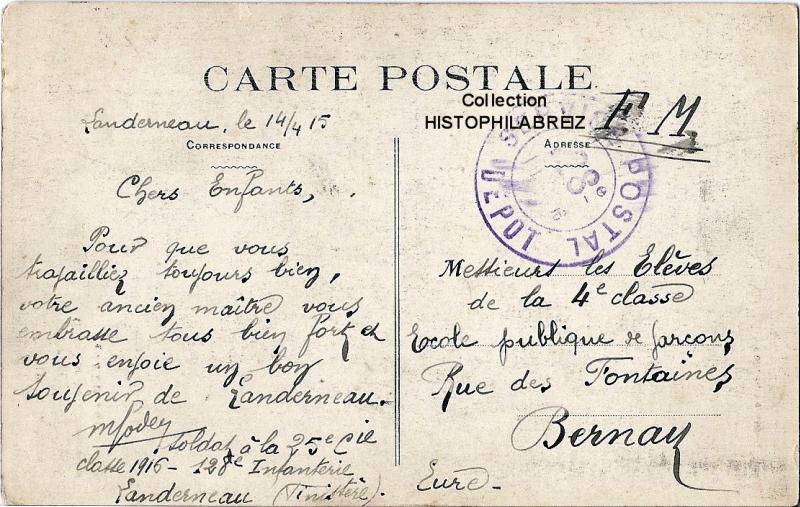 CARTE POSTALE
Collection
HISTOPHILABREIZ
F M
Landerneau, le 14/4 15
CORRESPONDANCE
ADRESSE
SERVICE POSTAL
DEPOT
Chers Enfants,
Pour que vous
travailliez toujours bien,
votre ancien maître vous
embrasse tous bien fort et
vous envoie un bon
souvenir de Landerneau.
soldat à la 25e Cie
classe 1916 - 128e Infanterie
Landerneau (Finistère).
Messieurs les Elèves
de la 4e classe
Ecole publique de garçons,
Rue des Fontaines,
Bernay
Eure -